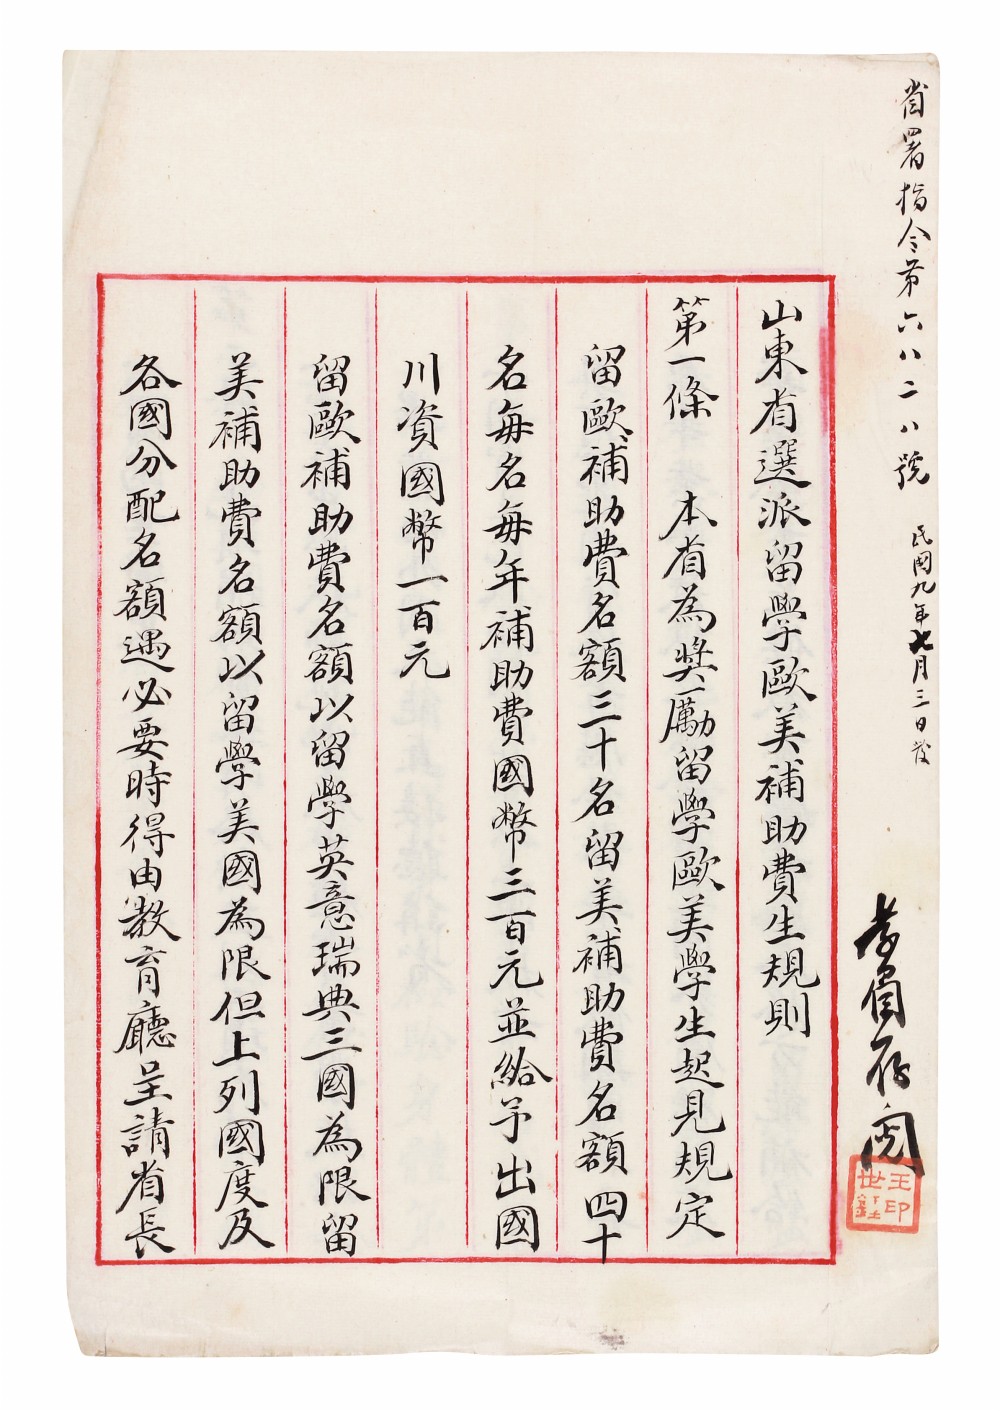 省署指令第六八二八號 民國九年七月三日發
存閱
王印世
山東省選派留學歐美補助費生規則
第一條 本省為獎厲留學歐美學生起見規定
留歐補助費名額三十名留美補助費名額四十
名每名每年補助費國幣三百元並給予出國
川資國幣一百元
留歐補助費名額以留學英意瑞典三國為限留
美補助費名額以留學美國為限但上列國度及
各國分配名額遇必要時得由教育廳呈請省長